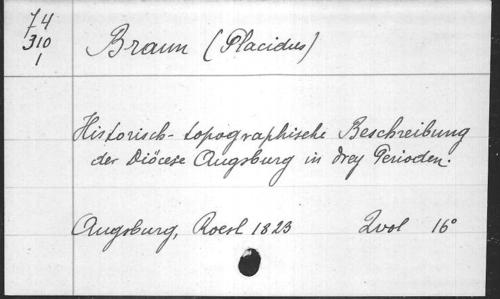 74
310
1
Braun (Placidus)
Historisch-topographische Beschreibung
der Diöcese Augsburg in drey Perioden.
Augsburg, Roesl 1823 2vol 16°